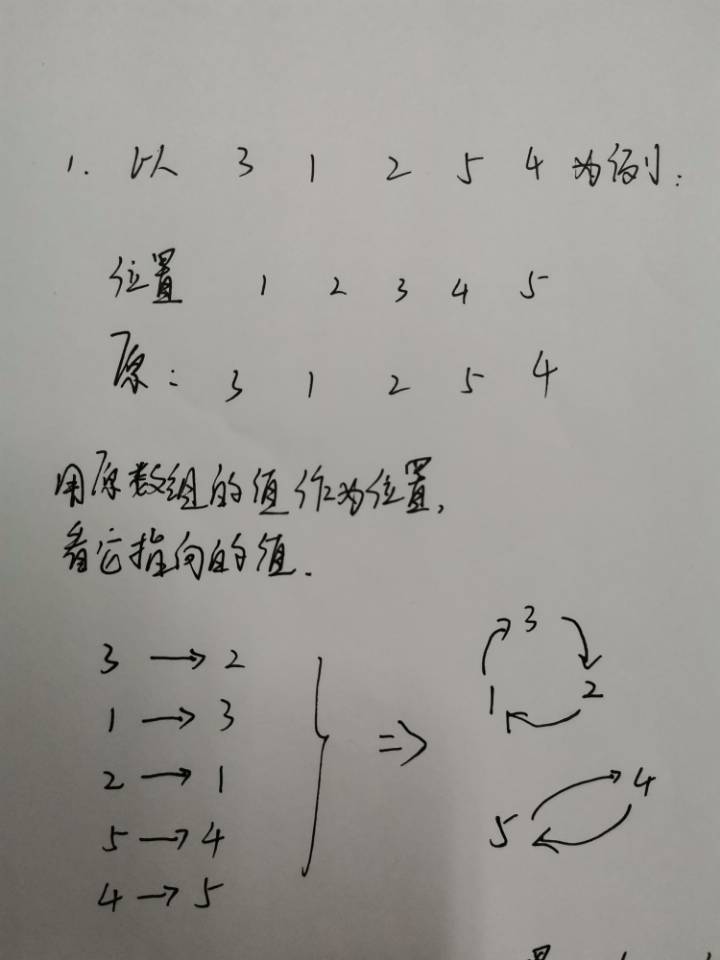 1. 以 3 1 2 5 4 为例:
位置 1 2 3 4 5
原: 3 1 2 5 4
用原数组的值作为位置,
看它指向的值.
3 → 2
1 → 3
2 → 1
5 → 4
4 → 5
⇒
3
1 2
4
5